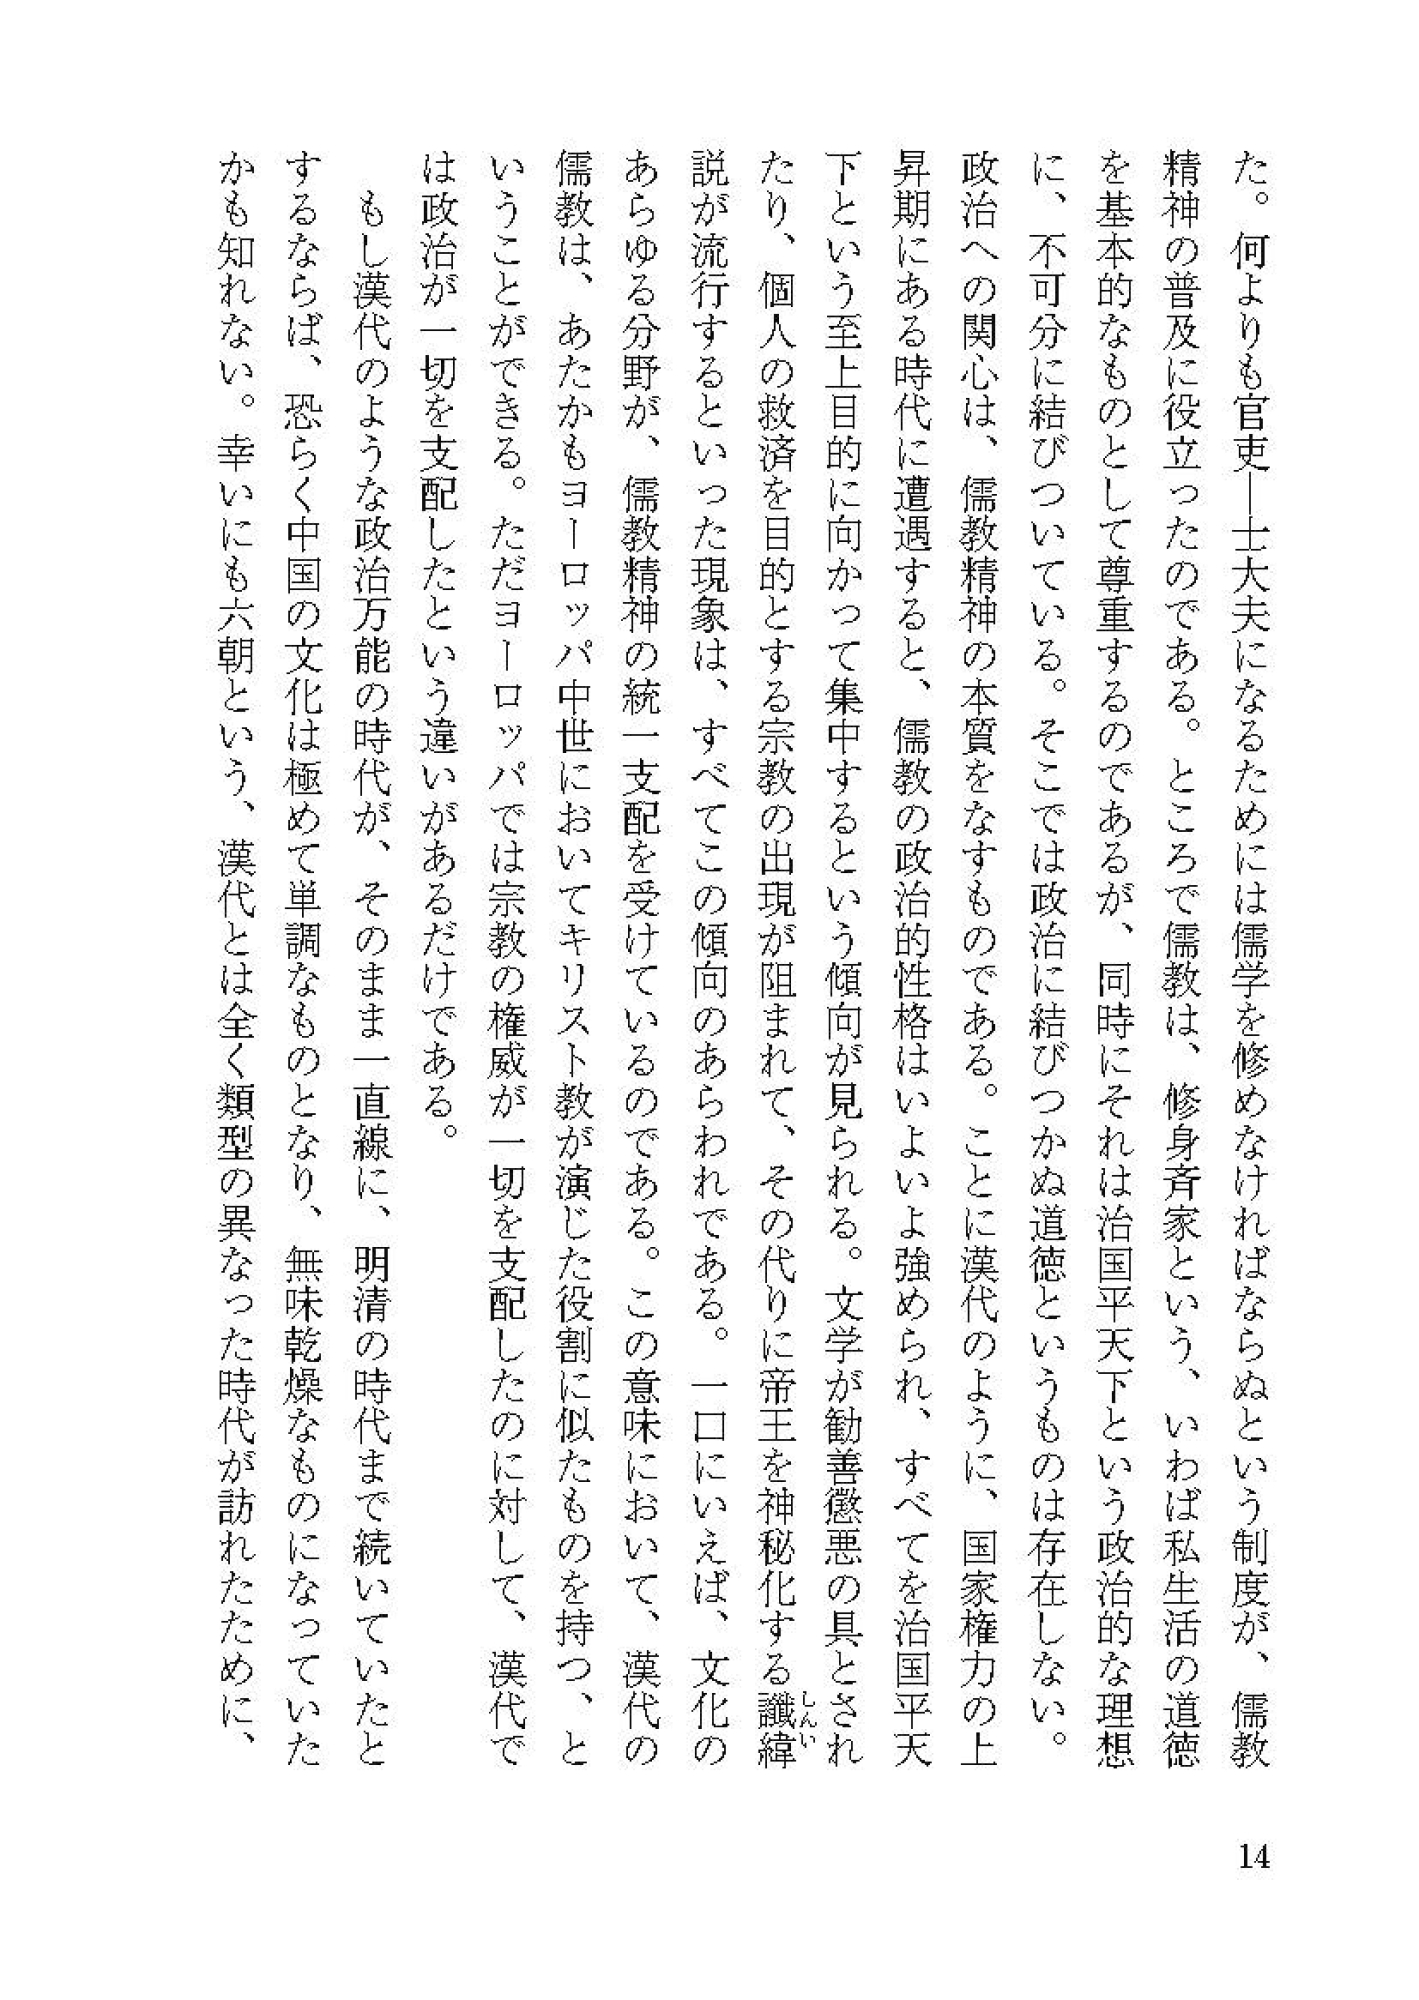 た。何よりも官吏―士大夫になるためには儒学を修めなければならぬという制度が、儒教
精神の普及に役立ったのである。ところで儒教は、修身斉家という、いわば私生活の道徳
を基本的なものとして尊重するのであるが、同時にそれは治国平天下という政治的な理想
に、不可分に結びついている。そこでは政治に結びつかぬ道徳というものは存在しない。
政治への関心は、儒教精神の本質をなすものである。ことに漢代のように、国家権力の上
昇期にある時代に遭遇すると、儒教の政治的性格はいよいよ強められ、すべてを治国平天
下という至上目的に向かって集中するという傾向が見られる。文学が勧善懲悪の具とされ
たり、個人の救済を目的とする宗教の出現が阻まれて、その代りに帝王を神秘化する讖緯
しんい
説が流行するといった現象は、すべてこの傾向のあらわれである。一口にいえば、文化の
あらゆる分野が、儒教精神の統一支配を受けているのである。この意味において、漢代の
儒教は、あたかもヨーロッパ中世においてキリスト教が演じた役割に似たものを持つ、と
いうことができる。ただヨーロッパでは宗教の権威が一切を支配したのに対して、漢代で
は政治が一切を支配したという違いがあるだけである。
もし漢代のような政治万能の時代が、そのまま一直線に、明清の時代まで続いていたと
するならば、恐らく中国の文化は極めて単調なものとなり、無味乾燥なものになっていた
かも知れない。幸いにも六朝という、漢代とは全く類型の異なった時代が訪れたために、
14